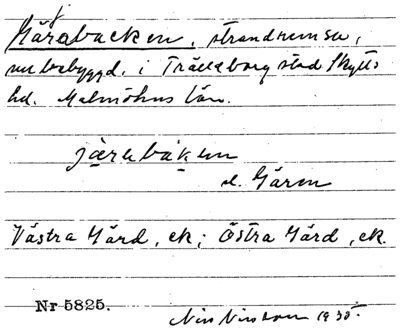 Gärabacken, strandremsa,
nu bebyggd, i Trälleborg stad Skytts
hd. Malmöhus län.
järabákan
el. Gären
Västra Gärd, ek; Östra Gärd, ek.
Nr 5825. Nils Nilsson 1935.